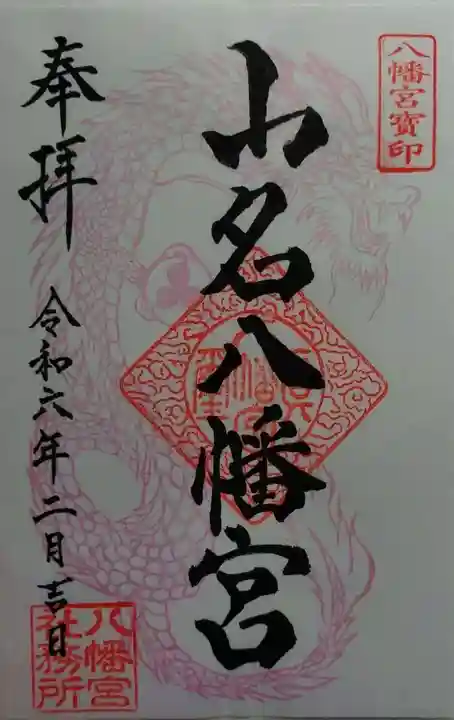 八幡宮寳印
小名八幡宮
奉拝
令和六年二月吉日
八幡宮
社務所